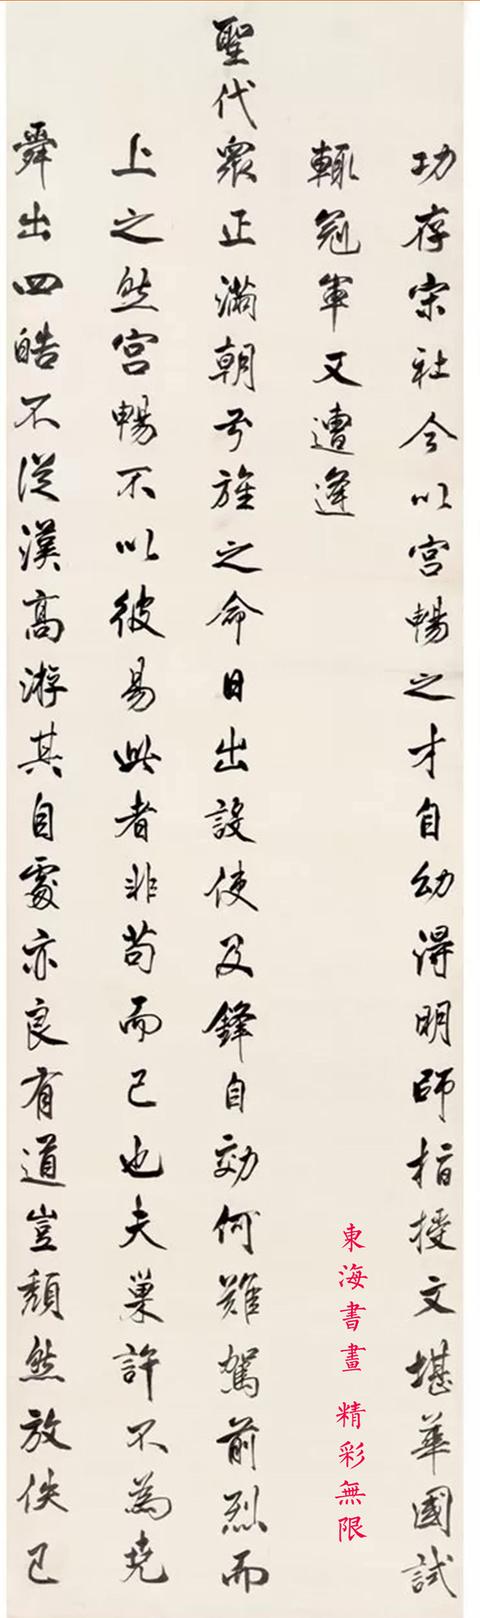 功存宗社今以宫暢之才自幼得明師指授文堪華國試
輒冠軍又遭逢
聖代衆正滿朝弓旌之命日出設使及鋒自効何難駕前烈而
上之然宫暢不以彼易此者非苟而已也夫巢許不為堯
舜出四皓不從漢高游其自處亦良有道豈頹然放佚已
東海書畫 精彩無限